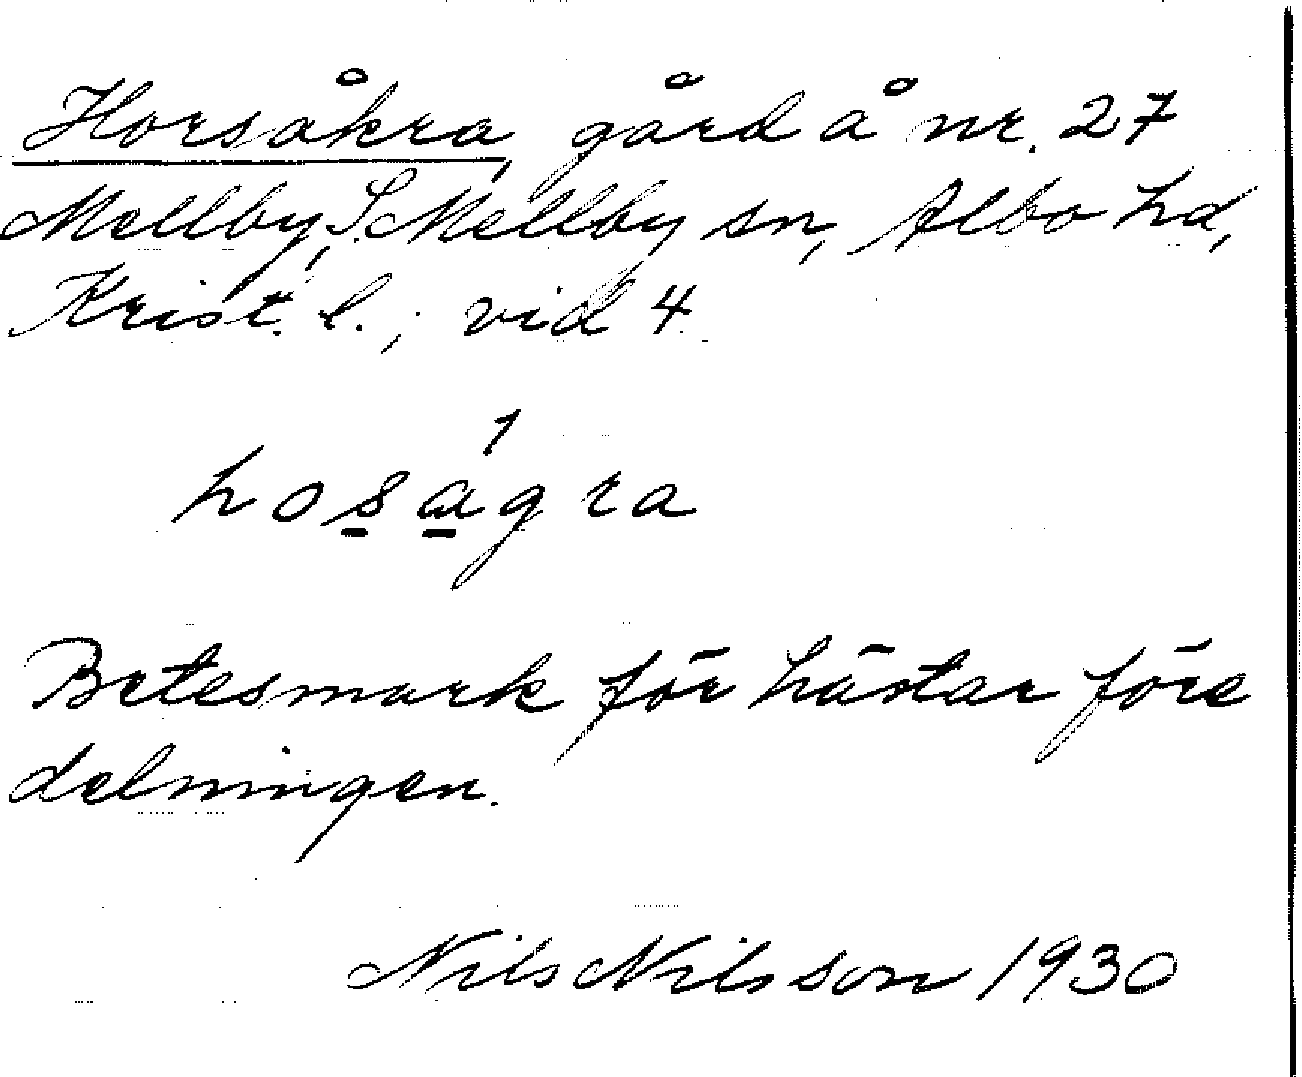 Horsåkra, gård å nr. 27
Mellby, S. Mellby sn, Albo hd,
Krist. l.; vid 4
hosagra
Betesmark för hästar före
delningen.
Nils Nilsson 1930